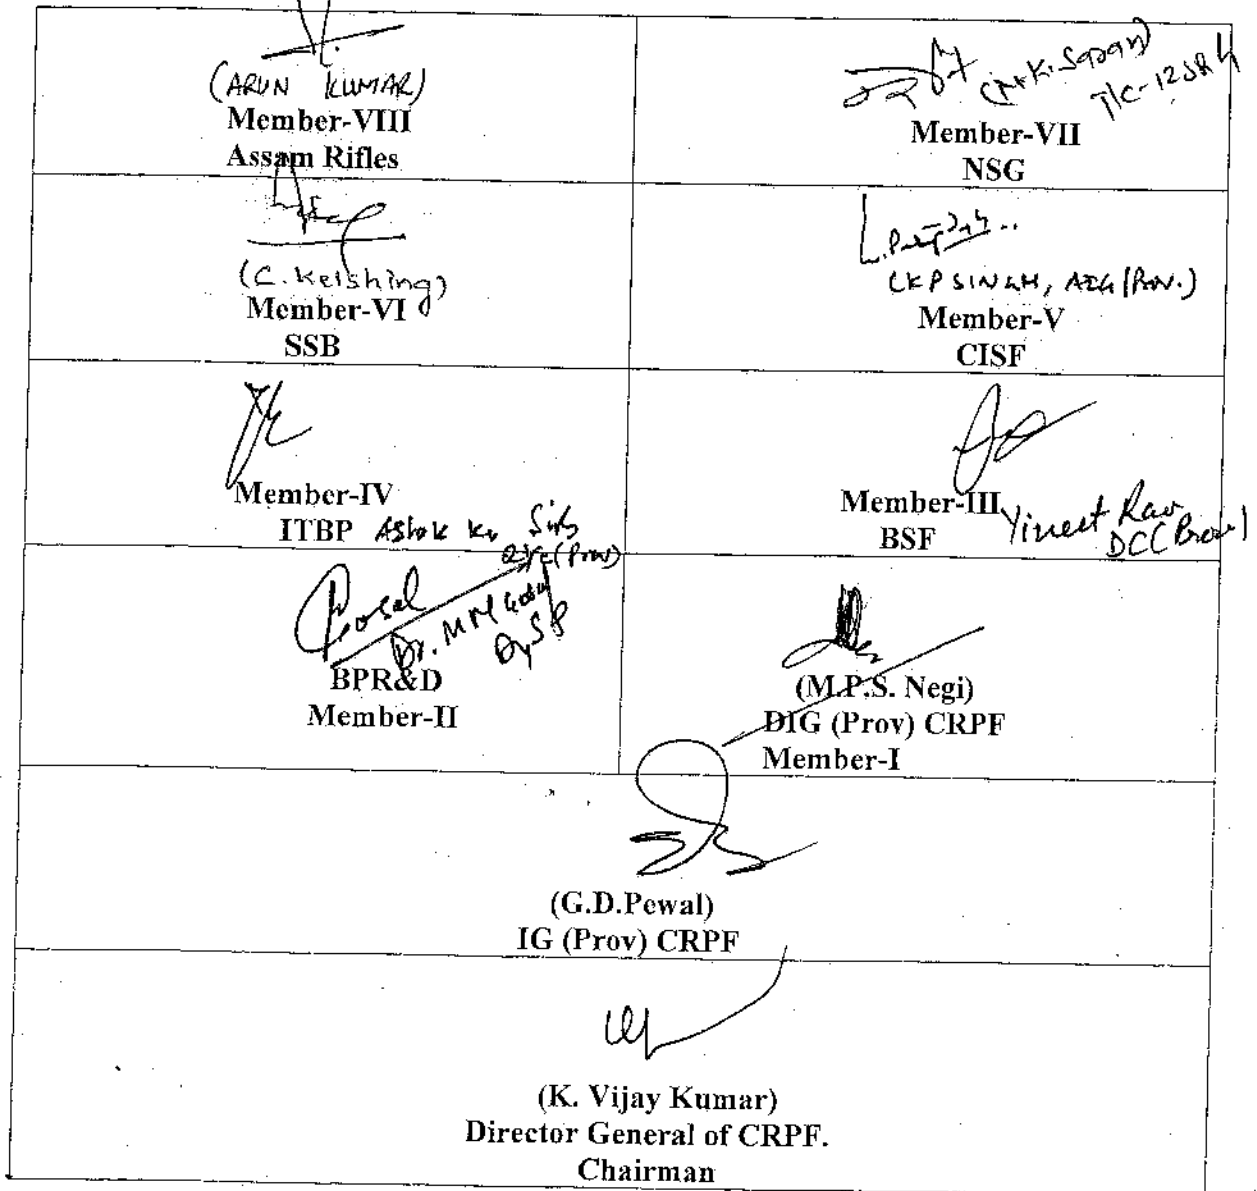 (ARUN KUMAR)
Member-VIII
Assam Rifles
Member-VII
NSG
(C. Keishing)
Member-VI
SSB
(KP SINGH, AIG (Prov.)
Member-V
CISF
Member-IV
ITBP Ashok Kr
Member-III Vineet Rav
BSF DC(Prov)
Dr. MM
DySP
BPR&D
Member-II
(M.P.S. Negi)
DIG (Prov) CRPF
Member-I
(G.D.Pewal)
IG (Prov) CRPF
(K. Vijay Kumar)
Director General of CRPF.
Chairman